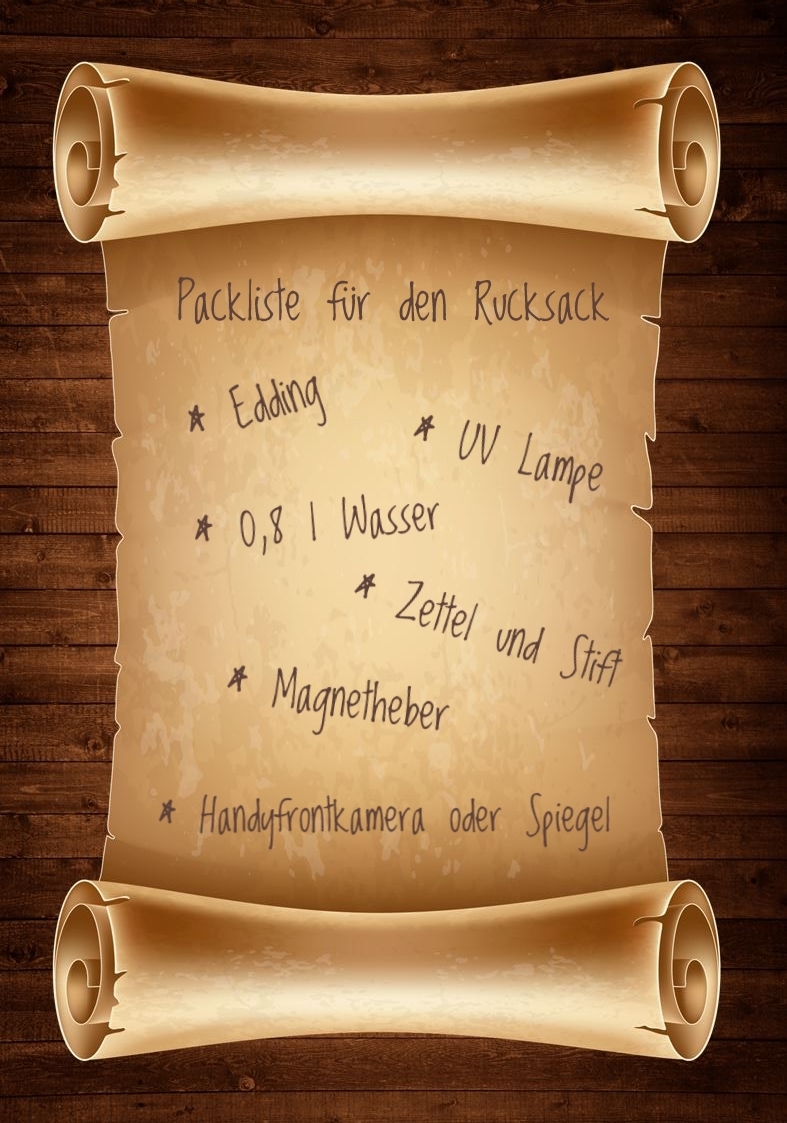 Packliste für den Rucksack
* Edding
* UV Lampe
* 0,8 l Wasser
* Zettel und Stift
* Magnetheber
* Handyfrontkamera oder Spiegel